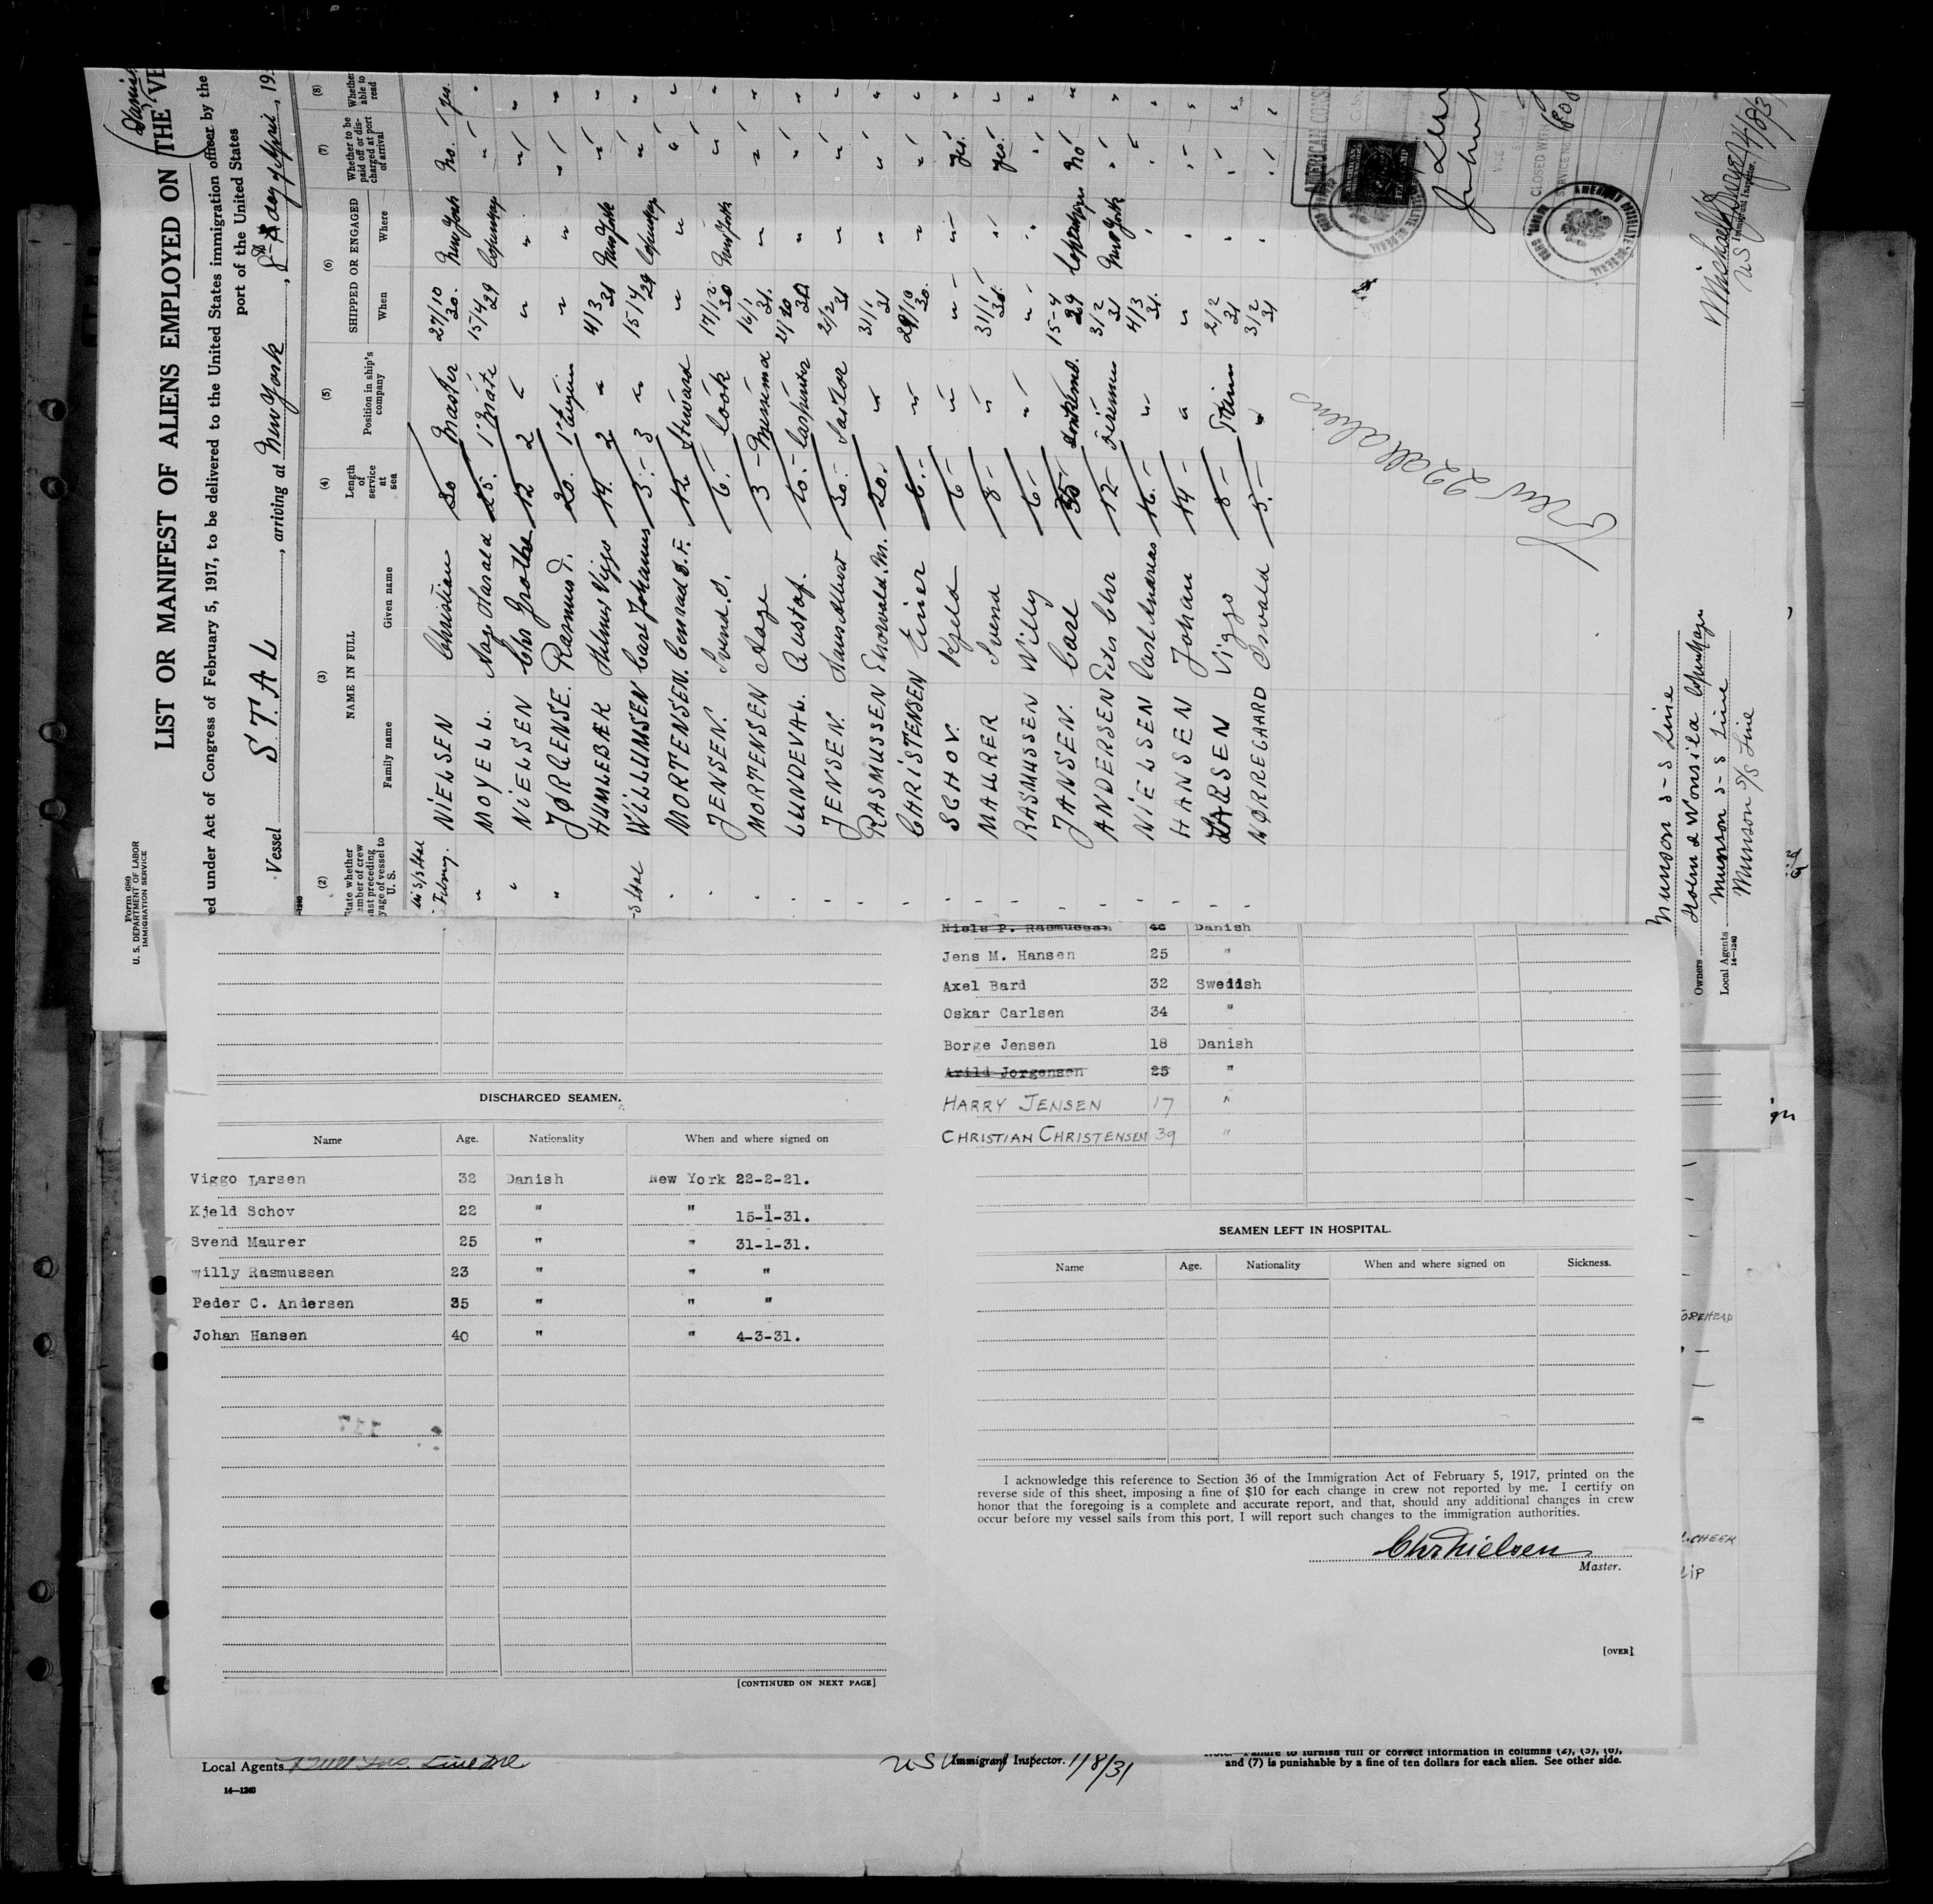 Form 680
U. S. DEPARTMENT OF LABOR
IMMIGRATION SERVICE
LIST OR MANIFEST OF ALIENS EMPLOYED ON THE VE
Danish
red under Act of Congress of February 5, 1917, to be delivered to the United States immigration officer by the
port of the United States
Vessel STAL, arriving at New York, 8th day of April, 193
(2) (3) (4) (5) (6) (7) (8)
State whether member of crew last preceding voyage of vessel to U. S.
NAME IN FULL
Family name Given name
Length of service at sea
Position in ship's company
SHIPPED OR ENGAGED
When Where
Whether to be paid off or discharged at port of arrival
Whether able to read
NIELSEN Christian 30 Master 27/10 30. New York No. yes.
MOYELL. Aage Harald 25. 1' Mate 15/4 29 Copenhag " "
NIELSEN Chr Grothe 12 2 " " " " "
JØRGENSE. Rasmus J. 20. 1' Engin " " " "
HUMLEBÆR Helmer Viggo 19. 2 " 4/3 31 New York " "
WILLUMSEN Carl Johannes 3.- 3 " 15/4 29 Copenhag " "
MORTENSEN. Conrad S.F. 12 Steward " " " "
JENSEN. Svend O. 6.- Cook 17/12 30 New York " "
MORTENSEN Aage 3- Messmnd 16/1 31. " " "
LUNDEVAL. Gustaf. 10.- Carpenter 21/10 30. " " "
JENSEN. Hans Albert 30.- Sailor 2/2 31 " " "
RASMUSSEN Thorvald. M. 20. " 31/1 31 " " "
CHRISTENSEN Einer 6.- " 29/10 30. " " "
SCHOV. Kjeld 6- " " " yes. "
MAURER Svend 8- " 31/1 31. " yes. "
RASMUSSEN Willy 6- " " " " "
JANSEN. Carl 35- Donkemd. 15-4 29 Copenhagen No "
ANDERSEN Peter Chr 12- Firemen 3/2 31 New York " "
NIELSEN Carl Andreas 16.- " 4/3 31. " " "
HANSEN Johan 14- " " " " "
LARSEN Viggo 8- Trimm 2/2 31 " " "
NØRREGAARD Osvald 5.- " 3/2 31 " " "
Crew 22 all aliens
AMERICAN CONS
CLOSED WITH
SERVICE NO.
US Immigrant Inspector.
Munson S-S Line
Owners Holm & Wonsild Copenhagen
Local Agents Munson S-S Line
Munson S/S Line
14—1240
Niels P. Rasmussen 48 Danish
Jens M. Hansen 25 "
Axel Bard 32 Swedish
Oskar Carlsen 34 "
Borge Jensen 18 Danish
Arild Jorgensen 25 "
HARRY JENSEN 17 "
CHRISTIAN CHRISTENSEN 39 "
DISCHARGED SEAMEN.
Name Age. Nationality When and where signed on
Viggo Larsen 32 Danish New York 22-2-21.
Kjeld Schov 22 " " 15-1-31.
Svend Maurer 25 " " 31-1-31.
willy Rasmussen 23 " " "
Peder C. Andersen 35 " " "
Johan Hansen 40 " " 4-3-31.
[CONTINUED ON NEXT PAGE]
SEAMEN LEFT IN HOSPITAL.
Name Age. Nationality When and where signed on Sickness.
I acknowledge this reference to Section 36 of the Immigration Act of February 5, 1917, printed on the
reverse side of this sheet, imposing a fine of $10 for each change in crew not reported by me. I certify on
honor that the foregoing is a complete and accurate report, and that, should any additional changes in crew
occur before my vessel sails from this port, I will report such changes to the immigration authorities.
Chr Nielsen
Master.
[OVER]
OREHEAD
CHEEK
LIP
Local Agents
US Immigrant Inspector. 1/8/31
Note.—Failure to furnish full or correct information in columns (2), (5), (6),
and (7) is punishable by a fine of ten dollars for each alien. See other side.
14—1240